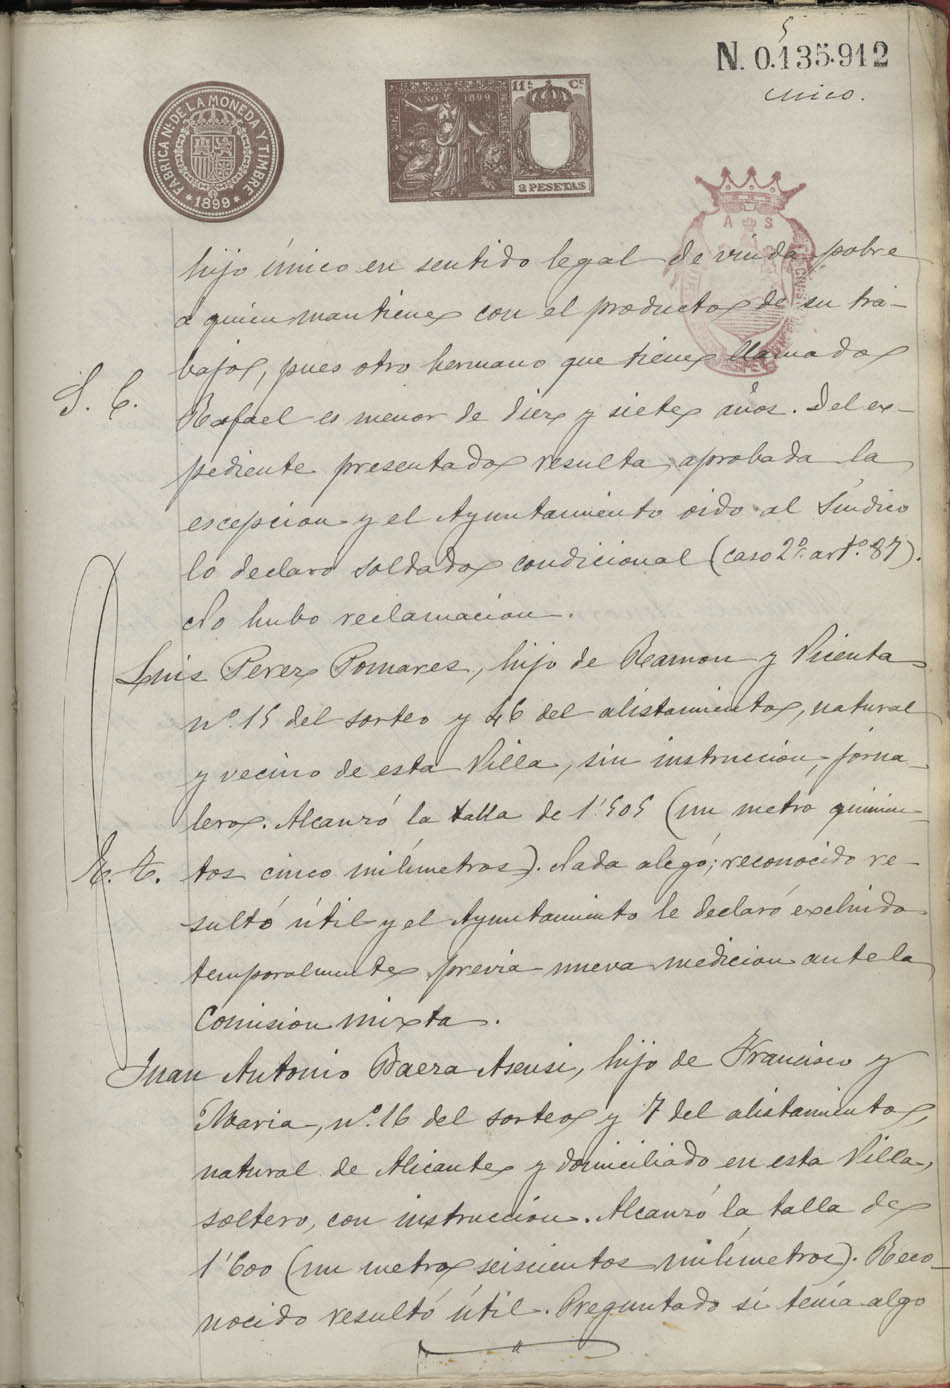 5
N. 0.135.912
unico.
FABRICA NL. DE LA MONEDA Y TIMBRE
1899
AÑO 1899
11ª Cª
2 PESETAS
A S
hijo único en sentido legal de viuda pobre
á quien mantiene con el producto de su tra-
bajo, pues otro hermano que tiene llamado
S. C.
Rafael es menor de diez y siete años. Del ex-
pediente presentado resulta aprobada la
escepcion y el Ayuntamiento oido al Síndico
lo declaró soldado condicional (caso 2º artº. 87).
No hubo reclamacion.
Luis Perez Pomares, hijo de Ramon y Vicenta
nº. 15 del sorteo y 46 del alistamiento, natural
y vecino de esta Villa, sin instruccion, jorna-
lero. Alcanzó la talla de 1'505 (un metro quinien-
E. T.
tos cinco milímetros). Nada alegó; reconocido re-
sultó útil y el Ayuntamiento le declaró excluido
temporalmente previa nueva medicion ante la
Comision mixta.
Juan Antonio Baeza Asensi, hijo de Francisco y
Maria, nº. 16 del sorteo y 7 del alistamiento,
natural de Alicante y domiciliado en esta Villa,
soltero, con instruccion. Alcanzó la talla de
1'600 (un metro seiscientos milímetros). Reco-
nocido resultó útil. Preguntado si tenía algo